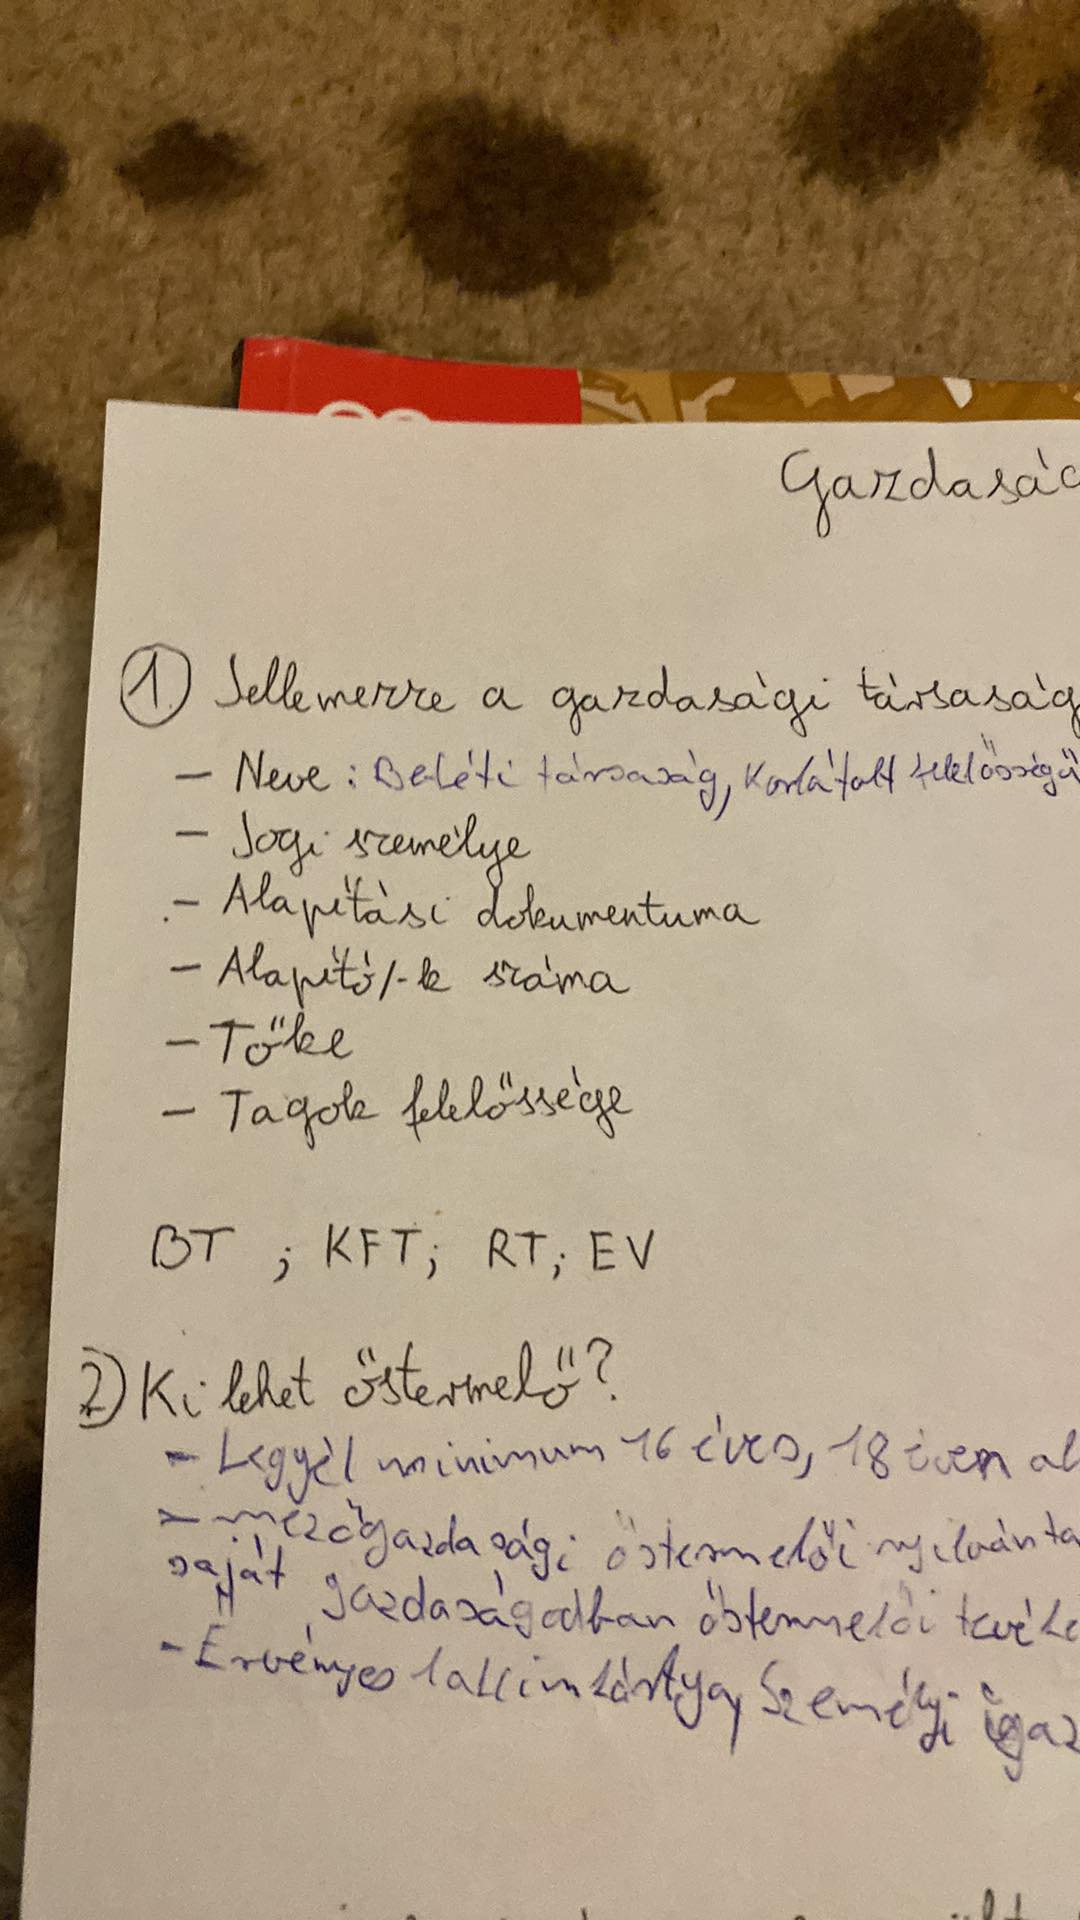 Gazdaság
1. Jellemezze a gazdasági társaság
- Neve: Betéti társaság, Korlátolt felelősségű
- Jogi személye
- Alapítási dokumentuma
- Alapító/-k száma
- Tőke
- Tagok felelőssége
BT ; KFT; RT; EV
2) Ki lehet őstermelő?
- Legyél minimum 16 éves, 18 éven al
- mezőgazdasági őstermelői nyilvánta
saját gazdaságodban őstermelői tevéke
- Érvényes lakcímkártya, Személyi igaz